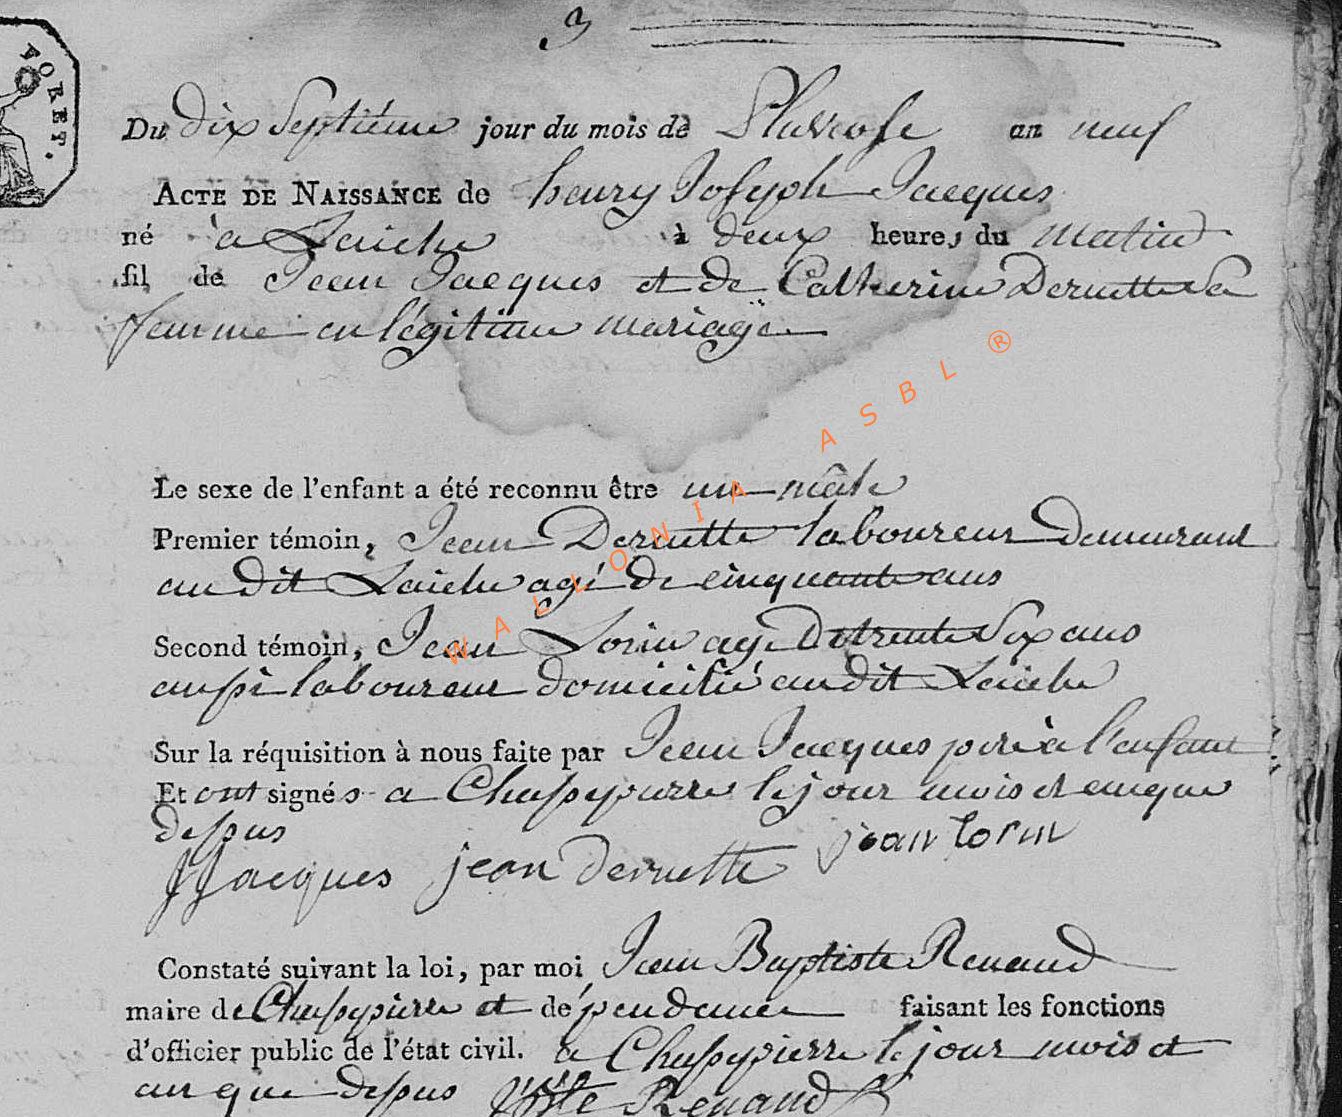 3
FORET.
Du dix Septiéme jour du mois de Pluviose an neuf
ACTE DE NAISSANCE de henry Joseph Jacques
né à Laiche à deux heures du matin
fil de Jean Jacques et de Catherine Dernette Sa
femme en légitime mariage
Le sexe de l'enfant a été reconnu être un mâle
Premier témoin, Jean Dernette laboureur Demeurant
au dit Laiche agé de cinquante ans
Second témoin, Jean Lorin agé De trente Six ans
aussi laboureur domicilié au dit Laiche
Sur la réquisition à nous faite par Jean Jacques pere à l'enfant
Et ont signés a Chassepierre le jour mois et an que
dessus
JJacques jean dernette jean lorin
Constaté suivant la loi, par moi Jean Baptiste Renaud
maire de Chassepierre et dépendance faisant les fonctions
d'officier public de l'état civil. a Chassepierre le jour mois et
an que dessus JBte Renaud
WALLONIA ASBL ®